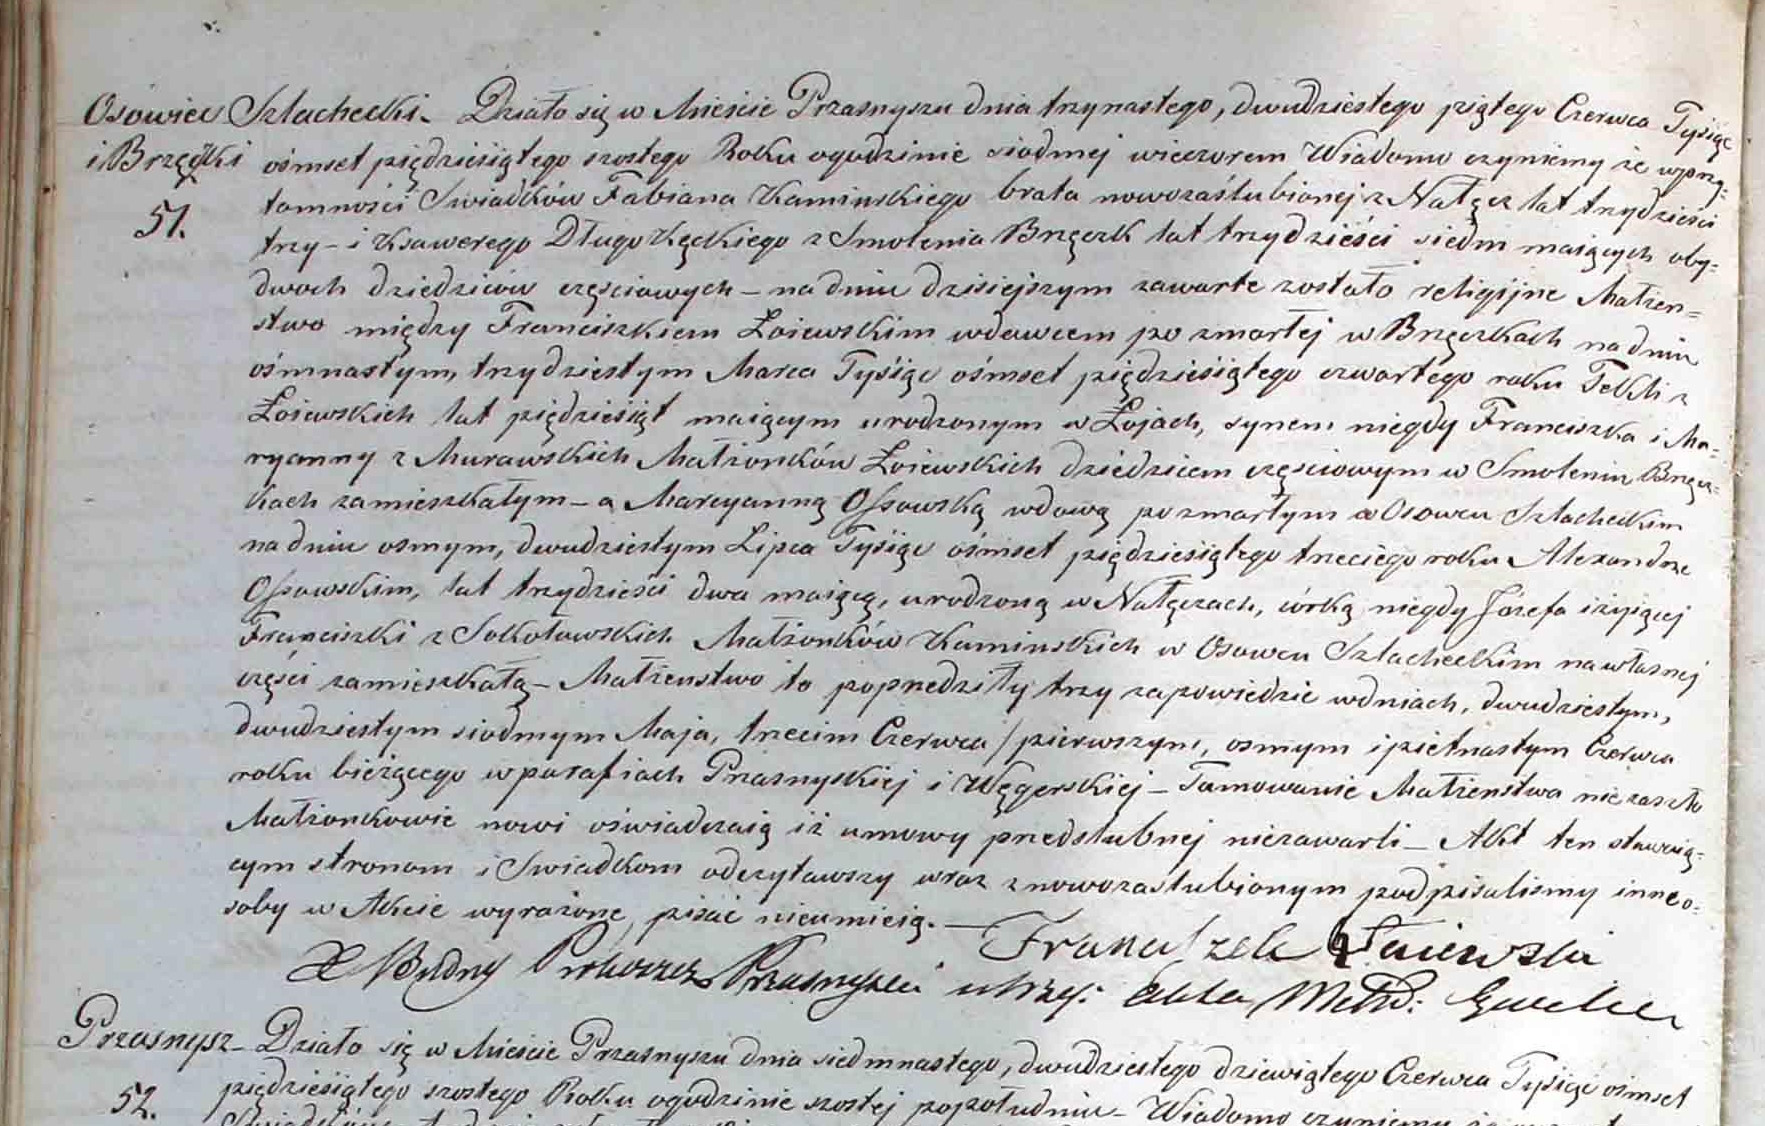 Osowiec Szlachecki. Działo się w Mieście Przasnyszu dnia trzynastego, dwudziestego piątego Czerwca Tysiąc
i Brzęczki ośmset pięćdziesiątego szostego Roku ogodzinie siodmej wieczorem Wiadomo czyniemy że wprzy=
51. tomności Swiadków Fabiana Kaminskiego brata nowozaślubionej z Nałęcz lat trzydzieści
trzy – i Ksawerego Długokęckiego z Smolenia Brzęczk lat trzydzieści siedm maiących oby=
dwoch dziedziców częściowych – na dniu dzisiejszym zawarte zostało religijne Małżen=
stwo między Franciszkiem Łoiewskim wdowcem po zmarłej w Brzęczkach na dniu
ośmnastym, trzydziestym Marca Tysiąc ośmset pięćdziesiątego czwartego roku Tekli z
Łoiewskich lat pięćdziesiąt maiącym urodzonym w Łojach, synem niegdy Franciszka i Ma=
ryanny z Murawskich Małżonków Łoiewskich dziedzicem częściowym w Smoleniu Brzęcz=
kach zamieszkałym – a Maryanną Ossowską wdową po zmarłym w Osowcu Szlacheckim
na dniu osmym, dwudziestym Lipca Tysiąc ośmset pięćdziesiątego trzeciego roku Alexandrze
Ossowskim, lat trzydzieści dwa maiącą, urodzoną w Nałęczach, córką niegdy Jozefa iżyiącej
Franciszki z Sokołowskich Małżonków Kaminskich w Osowcu Szlacheckim na własnej
części zamieszkałą – Małżenstwo to poprzedziły trzy zapowiedzie wdniach, dwudziestym,
dwudziestym siodmym Maja, trzecim Czerwca / pierwszym, osmym i piętnastym Czerwca
roku bieżącego w parafiach Przasnyskiej i Węgerskiej – Tamowanie Małżenstwa nie zaszło
Małżonkowie nowi oświadczaią iż umowy przedslubnej niezawarli – Akt ten stawaią=
cym stronom i Swiadkom odczytawszy wraz z nowozaslubionym podpisalismy inne o=
soby w Akcie wyrażone, pisać nieumieią. –
Franciszek Łaiewski
X Budny Proboszcz Przasnyski utrzy: Akta
Przasnysz – Działo się w Mieście Przasnyszu dnia siedmnastego, dwudziestego dziewiątego Czerwca Tysiąc ośmset
52. pięćdziesiątego szostego Roku ogodzinie szostej popołudniu – Wiadomo czyniemy